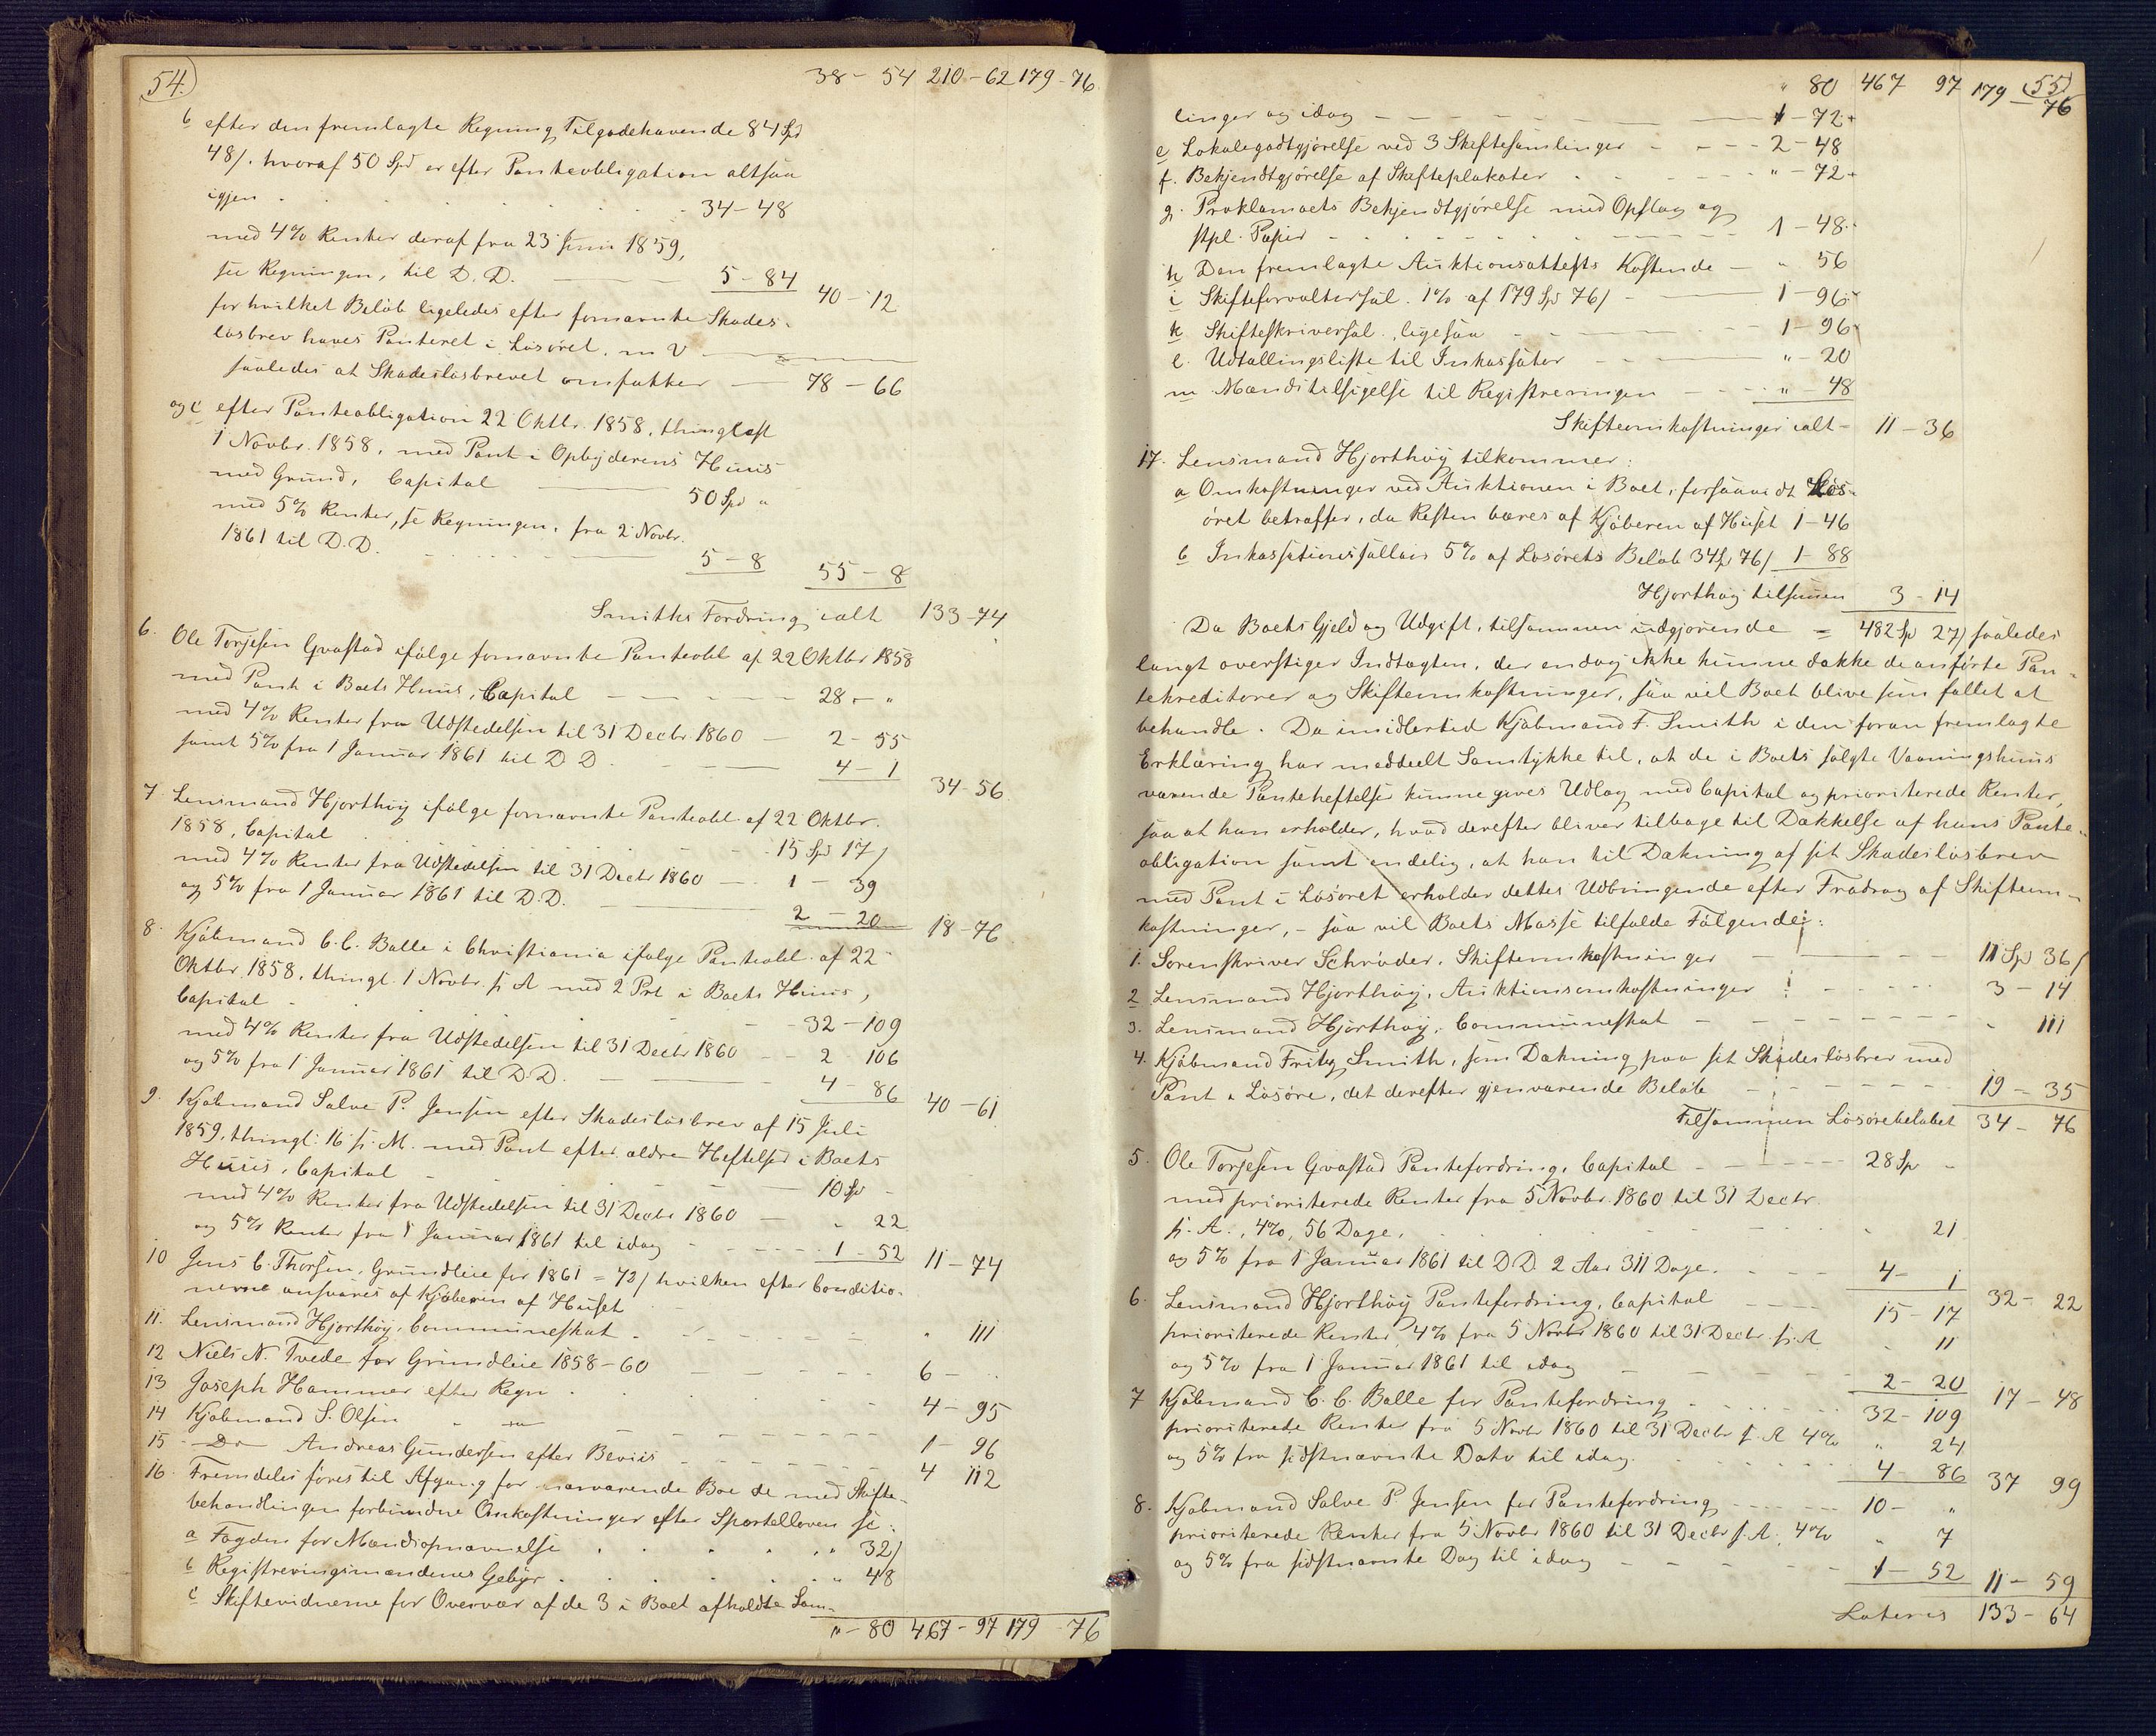 54.
38 - 54 210 - 62 179 - 76
b efter den fremlagte Regning Tilgodehavende 84 Spd
48/. hvoraf 50 Spd er efter Panteobligation altsaa
igjen . . . . . . 34 - 48
med 4% Renter deraf fra 23 Juni 1859,
see Regningen, til D. D. — 5 - 84
40 - 12
for hvilket Beløb ligeledes efter fornævnte Skades-
løsbrev haves Panteret i Løsøret. m V
saaledes at Skadesløsbrevet omfatter — 78 - 66
og c efter Panteobligation 22 Oktbr. 1858, thinglæst
1 Novbr. 1858, med Pant i Opbyderens Huus
med Grund, Capital — 50 Spd "
med 5% Renter, se Regningen, fra 2 Novbr.
1861 til D.D. — 5 - 8 55 - 8
Smiths Fordring ialt 133 - 74
6. Ole Torjesen Gvastad ifølge fornævnte Panteobl. af 22 Oktbr 1858
med Pant i Boets Huus, Capital — 28 - "
med 4% Renter fra Udstedelsen til 31 Decbr. 1860 — 2 - 55
samt 5% fra 1 Januar 1861 til D D. — 4 - 1
34 - 56.
7. Lensmand Hjorthøy ifølge fornævnte Panteobl. af 22 Oktbr.
1858, Capital . . . 15 Spd 17/
med 4% Renter fra Udstedelsen til 31 Decbr 1860 — 1 - 39
og 5% fra 1 Januar 1861 til D.D. — 2 - 20 18 - 76
8. Kjøbmand C. C. Balle i Christiania ifølge Panteobl. af 22
Oktbr. 1858, thingl. 1 Novbr. s. A med 2 Prt. i Boets Huus,
Capital - 32 - 109
med 4% Renter fra Udstedelsen til 31 Decbr 1860 - 2 106
og 5% fra 1 Januar 1861 til D.D. — 4 - 86 40 - 61
9. Kjøbmand Salve P. Jensen efter Skadesløsbrev af 15 Juli
1859, thingl: 16 s. M. med Pant efter ældre Heftelser i Boets
Huus, Capital — 10 Spd -
med 4% Renter fra Udstedelsen til 31 Decbr 1860 — " 22
og 5% Renter fra 1 Januar 1861 til idag - 1 - 52 11 - 74
10 Jens C. Thorsen, Grundleie for 1861 = 72/ hvilken efter Conditio-
nerne ansvares af Kjøberen af Huset
11. Lensmand Hjorthøy, Communeskat - " 111
12 Niels N. Tvede for Grundleie 1858 - 60 — 6 - "
13 Joseph Hammer efter Regn . 4 - 95
14 Kjøbmand S. Olsen - " - 1 - 96
15 - Do - Andreas Gundersen efter Beviis - 4 112
16. Fremdeles føres til Afgang for nærværende Boe de med Skifte-
behandlingen forbundne Omkostninger efter Sportelloven sc:
a Fogden for Mændsopnævnelse . . . " 32/
b Registreringsmændenes Gebyr . . . " 48
c Skiftevidnerne for Overvær af de 3 i Boet afholdte Sam-
" - 80 467 - 97 179 - 76
" 80 467 97 179 - 76
55)
linger og idag — 1 - 72 +
e Lokalegodtgjørelse ved 3 Skiftesamlinger - 2 - 48
f. Bekjendtgjørelse af Skifteplakater . " - 72 +
g. Proklamaets Bekjendtgjørelse med Opslag og
stpl. Papir - 1 - 48.
h Den fremlagte Auktionsattests Kostende — " 56
i Skifteforvaltersal. 1% af 179 Spd 76/ — 1 - 96
k Skifteskriversal., ligesaa — 1 - 96
l. Udtallingsliste til Inkassator - " - 20
m Mændstilsigelse til Registreringen - " - 48
Skifteomkostninger ialt - 11 - 36
17. Lensmand Hjorthøy tilkommer:
a Omkostninger ved Auktionen i Boet, forsaavidt Løs-
øret betræffer, da Resten bæres af Kjøberen af Huset 1 - 46
b Inkassationssallair 5% af Løsørets Beløb 34 Sp 76/ 1 - 88
Hjorthøy tilsammen 3 - 14
Da Boets Gjeld og Udgift, tilsammen udgjørende = 482 Sp 27/ saaledes
langt overstiger Indtægten, der endog ikke kunne dække de anførte Pan-
tekreditorer og Skifteomkostninger, saa vil Boet blive som fallit at
behandle. Da imidlertid Kjøbmand F. Smith i den foran fremlagte
Erklæring har meddeelt Samtykke til, at de i Boets solgte Vaaningshuus
værende Panteheftelser kunne gives Udlæg med Capital og prioriterede Renter,
saa at han erholder, hvad derefter bliver tilbage til Dækkelse af hans Pante-
obligation samt endelig, at han til Dækning af sit Skadesløsbrev
med Pant i Løsøret erholder dettes Udbringende efter Fradrag af Skifteom-
kostninger, - saa vil Boets Masse tilfalde Følgende:
1. Sorenskriver Schrøder, Skifteomkostninger — 11 Spd 36/
2 Lensmand Hjorthøy, Auktionsomkostninger - 3 - 14
3. Lensmand Hjorthøy, Communeskat - " 111
4. Kjøbmand Fritz Smith, som Dækning paa sit Skadesløsbrev med
Pant i Løsøre, det derefter gjenværende Beløb — 19 - 35
Tilsammen Løsørebeløbet 34 - 76
5. Ole Torjesen Gvastad Pantefordring, Capital - 28 Sp -
med prioriterede Renter fra 5 Novbr. 1860 til 31 Decbr.
s. A., 4%, 56 Dage, " 21
og 5% fra 1 Januar 1861 til D D. 2 Aar 311 Dage. - 4 - 1
32 - 22
6. Lensmand Hjorthøy Pantefordring, Capital — 15 - 17
prioriterede Renter 4% fra 5 Novbr 1860 til 31 Decbr. s. A " 11
og 5% fra 1 Januar 1861 til idag — 2 - 20
17 - 48
7 Kjøbmand C. C. Balle for Pantefordring - 32 - 109
prioriterede Renter fra 5 Novbr 1860 til 31 Decbr s. A 4% " 24
og 5% fra sidstnævnte Dato til idag. 4 - 86
37 99
8. Kjøbmand Salve P Jensen for Pantefordring - 10 - "
prioriterede Renter fra 5 Novbr 1860 til 31 Decbr s. A. 4% " 7
og 5% fra sidstnævnte Dag til idag - 1 - 52 11 - 59
Lateris 133 - 64